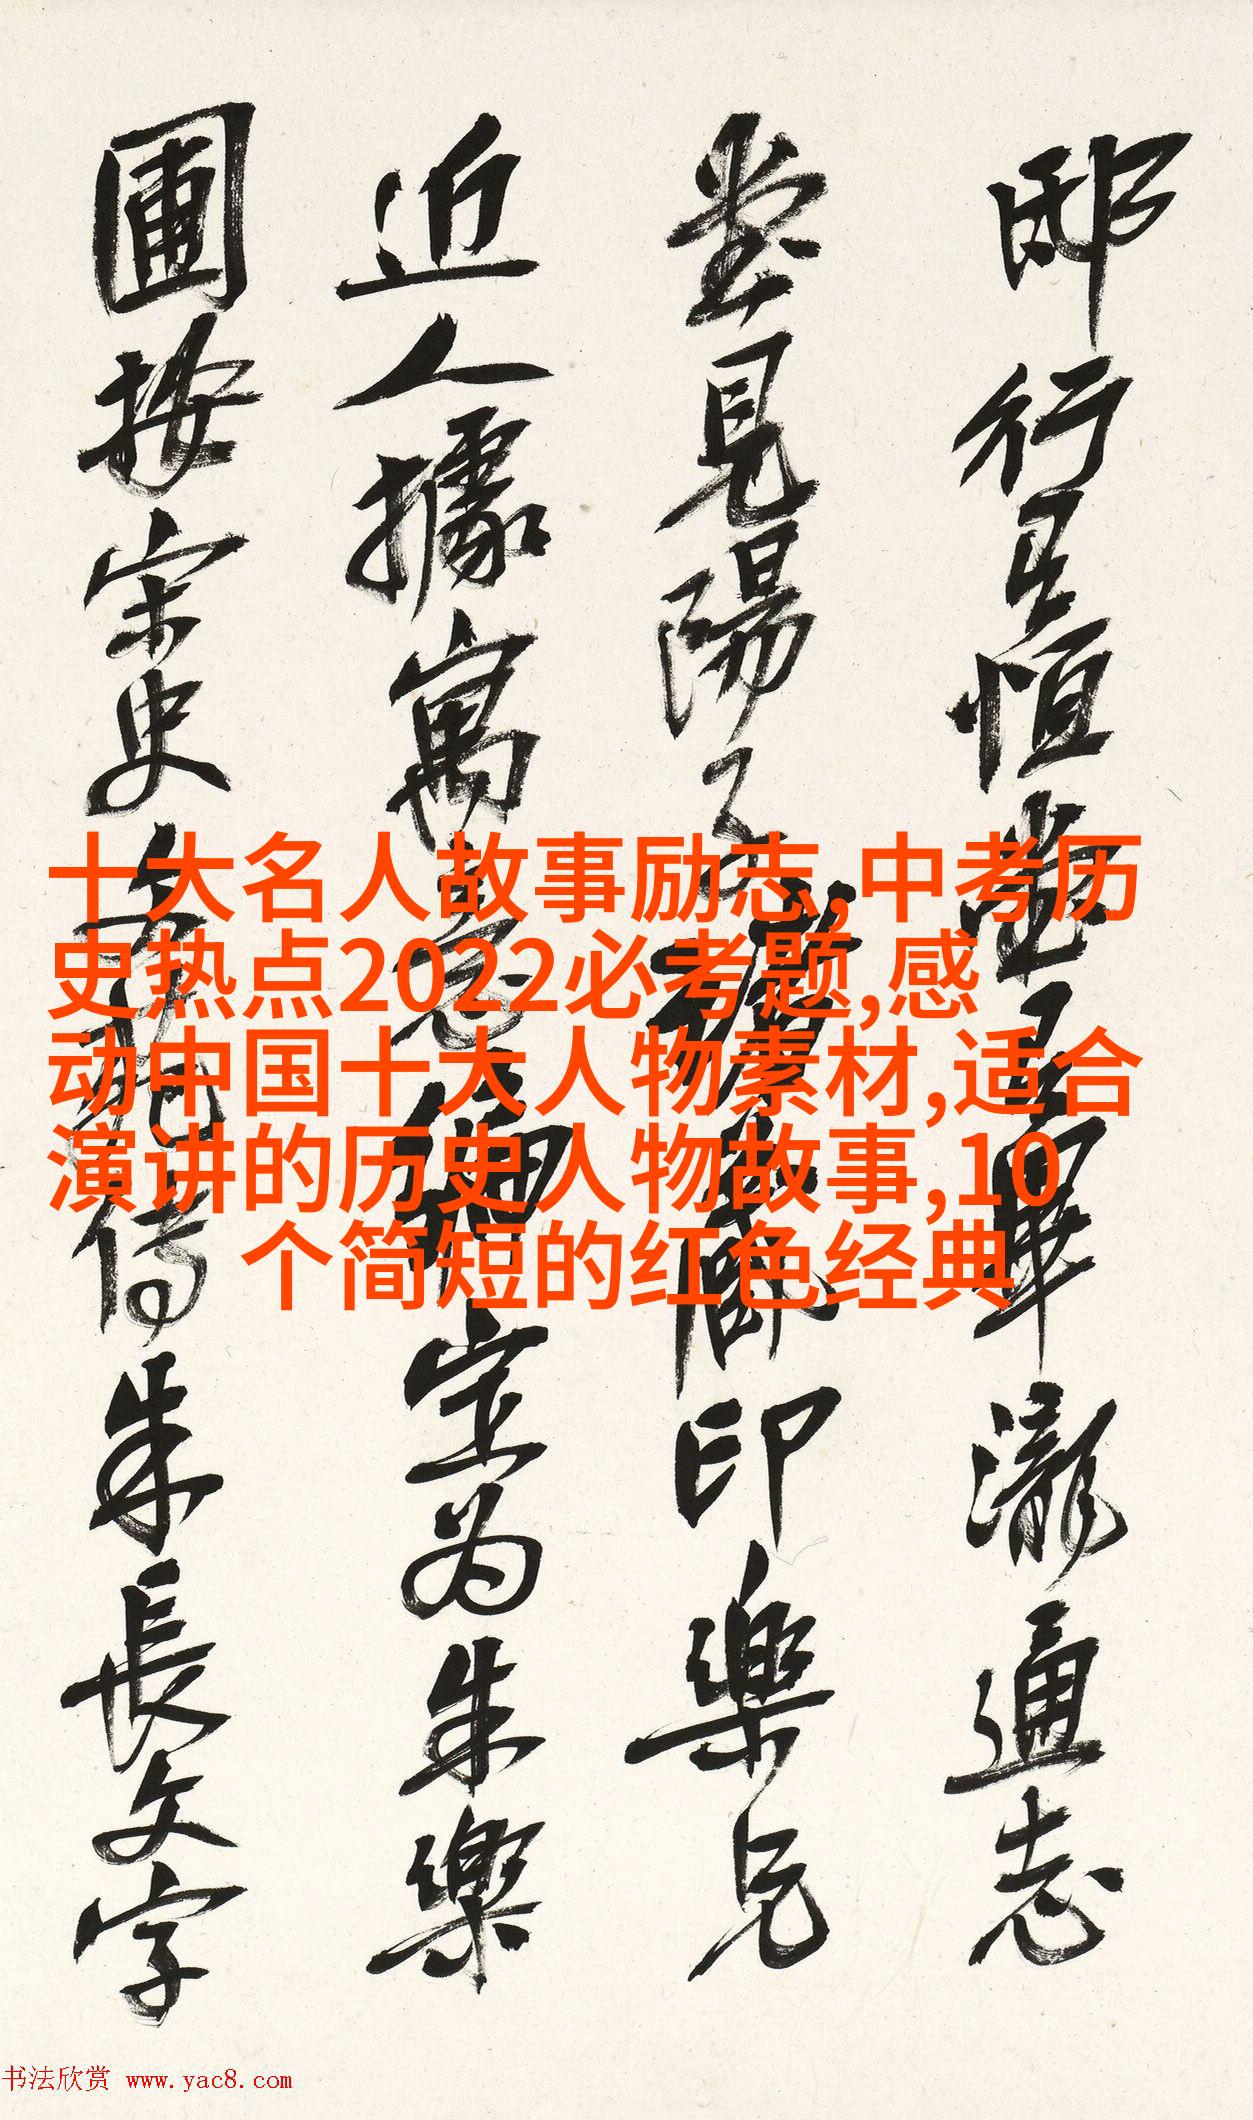 邸行呈恒
堂見陽
印樂兄
瀧通志
近人據寓意編定为朱樂
圃按宋史文苑傳朱長文字
十大名人故事励志,中考历
史热点2022必考题,感
动中国十大人物素材,适合
演讲的历史人物故事,10
个简短的红色经典
书法欣赏 www.yac8.com